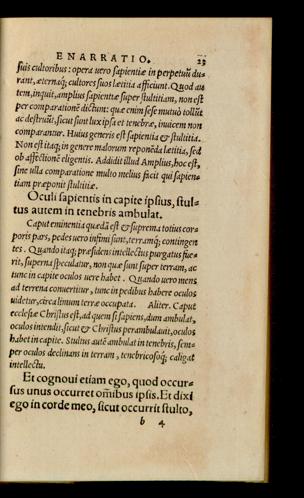 ENARRATIO. 23
suis cultoribus: opera uero sapientiæ in perpetuũ du-
rant, æternaq́; cultores suos lætitia afficiunt. Quod au
tem, inquit, amplius sapientiæ super stultitiam, non est
per comparationẽ dictum: quæ enim sese mutuò tollũt
ac destruũt, sicut sunt lux ipsa et tenebræ, inuicem non
comparantur. Huius generis est sapientia & stultitia.
Non est itaq; in genere malorum reponẽda lætitia, sed
ob affectionẽ eligentis. Addidit illud Amplius, hoc est,
sine ulla comparatione multo melius facit qui sapien-
tiam præponit stultitiæ.
Oculi sapientis in capite ipsius, stul-
tus autem in tenebris ambulat.
Caput eminentia quædã est & suprema totius cor-
poris pars, pedes uero infimi sunt, terramq́; contingen
tes. Quando itaq; præsidens intellectus purgatus fue-
rit, superna speculatur, non quæ sunt super terram, ac
tunc in capite oculos uere habet. Quando uero mens
ad terrena conuertitur, tunc in pedibus habere oculos
uidetur, circa limum terræ occupata. Aliter. Caput
ecclesiæ Christus est, ad quem si sapiens, dum ambulat,
oculos intendit, sicut & Christus perambulauit, oculos
habet in capite. Stultus autẽ ambulat in tenebris, sem-
per oculos declinans in terram, tenebricosoq́; caligat
intellectu.
Et cognoui etiam ego, quod occur-
sus unus occurret om̃ibus ipsis. Et dixi
ego in corde meo, sicut occurrit stulto,
b 4